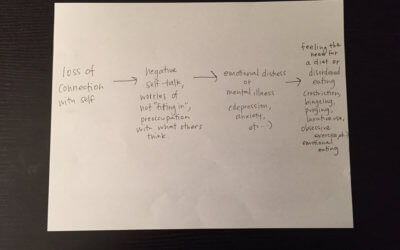 loss of
connection
with self
negative
self-talk,
worries of
not "fitting in",
preoccupation
with what others
think
emotional distress
or
mental illness
(depression,
anxiety,
etc...)
feeling the
need for
a diet or
disordered
eating
(restriction,
bingeing,
purging,
laxative use,
obsessive
exercise,
emotional
eating